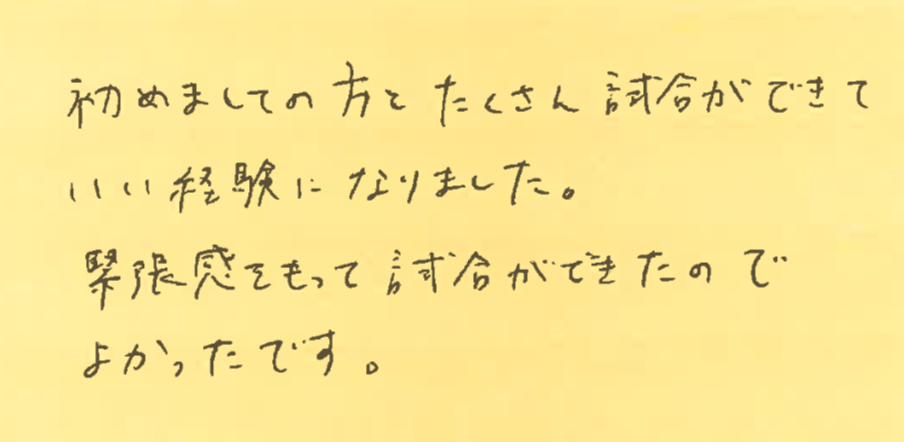 初めましての方とたくさん試合ができて
いい経験になりました。
緊張感をもって試合ができたので
よかったです。